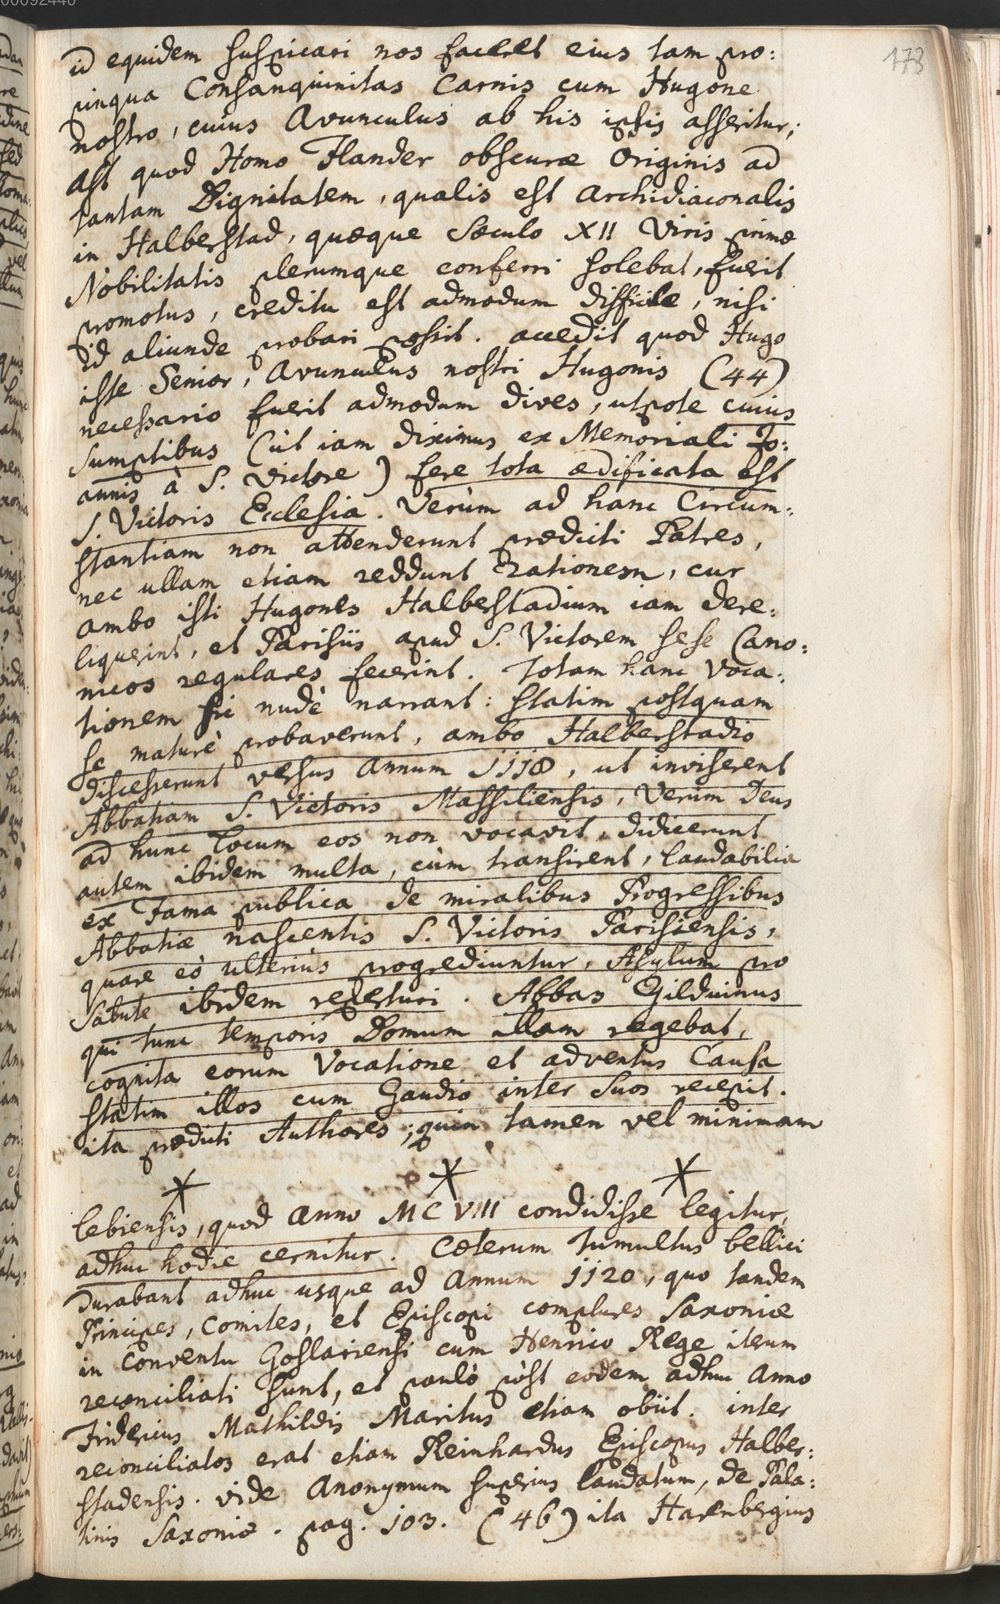 00092440
173
id equidem suspicari nos faceret eius tam pro:
pinqua Consanquinitas Carnis cum Hugone
nostro, cuius Avunculus ab his ipsis asseritur;
Ast quod Homo Flander obscuræ Originis ad
tantam Dignitatem, qualis est Archidiaconalis
in Halberstad, quæque Sæculo XII Viris primæ
Nobilitatis plerumque conferri solebat, fuerit
promotus, creditu est admodum difficile, nisi
id aliunde probari possit. accedit quod Hugo
iste Senior, Avunculus nostri Hugonis (44)
necessario fuerit admodum dives, utpote cuius
Sumptibus (ùt iam diximus ex Memoriali Jo:
annis à S. Victore) fere tota ædificata est
S. Victoris Ecclesia. Verùm ad hanc Circum:
stantiam non attenderunt prædicti Patres,
nec ullam etiam reddunt Rationem, cur
ambo isti Hugones Halberstadium iam dere:
liquerint, et Parisiis apud S. Victorem sese Cano:
nicos regulares fecerint. Totam hanc Voca:
tionem sic nudè narrant: Statim postquam
se maturè probaverunt, ambo Halberstadio
discesserunt versus Annum 1118, ut inviserent
Abbatiam S. Victoris Massiliensis, Verùm Deus
ad hunc locum eos non vocavit, didicerunt
autem ibidem multa, cùm transirent, laudabilia
ex Fama publica de mirabilibus Progressibus
Abbatiæ nascentis S. Victoris Parisiensis,
quare eò ulteriùs progrediuntur, Asylum pro
Salute ibidem reperturi. Abbas Gilduinus
qui tunc temporis Domum illam regebat,
cognita eorum Vocatione et adventus Causa
statim illos cum Gaudio inter Suos recepit.
ita prædicti Authores; quin tamen vel minimam
lebiensis, quod Anno MCVIII condidisse legitur,
adhuc hodie cernitur. Cæterum Tumultus bellici
durabant adhuc usque ad Annum 1120, quo tandem
Principes, Comites, et Episcopi complures Saxoniæ
in Conventu Goslariensi cum Henrico Rege iterum
reconciliati sunt, et paulò pòst eodem adhuc Anno
Fridericus Mathildis Maritus etiam obiit. inter
reconciliatos erat etiam Reinhardus Episcopus Halber:
stadensis. vide Anonymum superius laudatum, de Pala:
tinis Saxoniæ. pag. 103. (46) ita Harenbergius